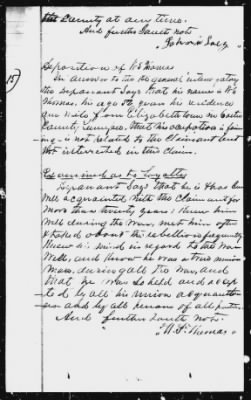 the County at any time.
And further saith not.
Deposition of W S Thomas
In answer to the 1st general interrogatory
the Deponant Says that his name is W S
Thomas. his age 54 years his residence
miles from Elizabeth town in Carter
County Tennessee that his occupation is farm-
ing is not related to the Claimant and
not interested in this Claim.
15
Examined as to Loyalty
Deponant Says that he is & has been
well acquainted with the Claimant for
more than twenty years. Knew him
well during the War, met him often
& talked about the rebellion frequently
Knew his mind in regard to the War
Well, and know he was a true union
Man, during all the War, and
that he was so held and accep
ted by all his union acquaintan
ces and by all persons of all parties.
And further saith not.
W. S. Thomas